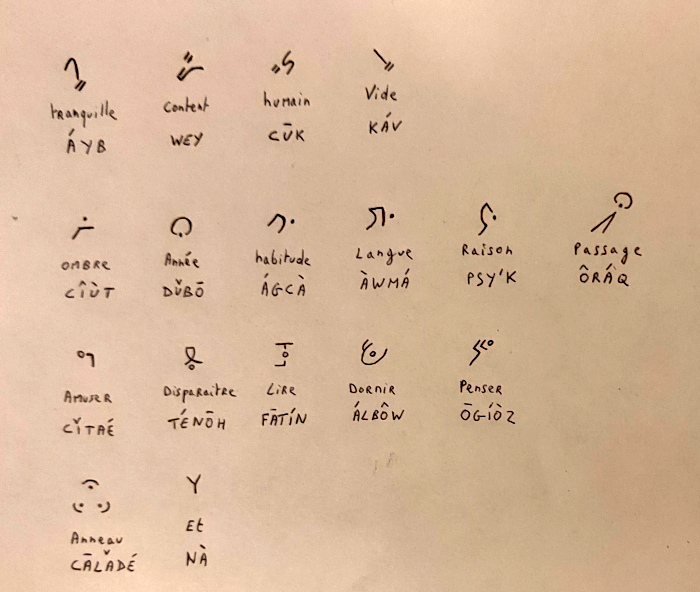 tranquille Content humain Vide
ÁYB WEY CŪK KÁV
OMBRE Année habitude Langue Raison Passage
CÎÙT DǓBŌ ÁGCÀ ÀWMÁ PSY'K ÔRÁQ
AMUSER DISPARAITRE LIRE DORNIR Penser
CǏTAÉ TÉNŌH FĀTÍN ÁLBÔW ŌGÍÒZ
Anneau Et
CĀLǍDÉ NÀ